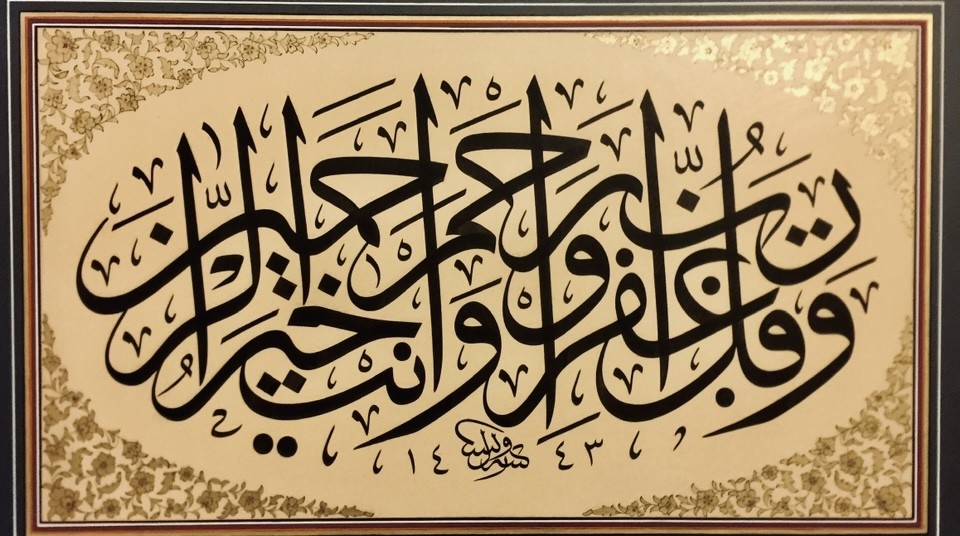 وقل رب اغفر وارحم وانت خير الرّٰحمين
١٤ ٤٣